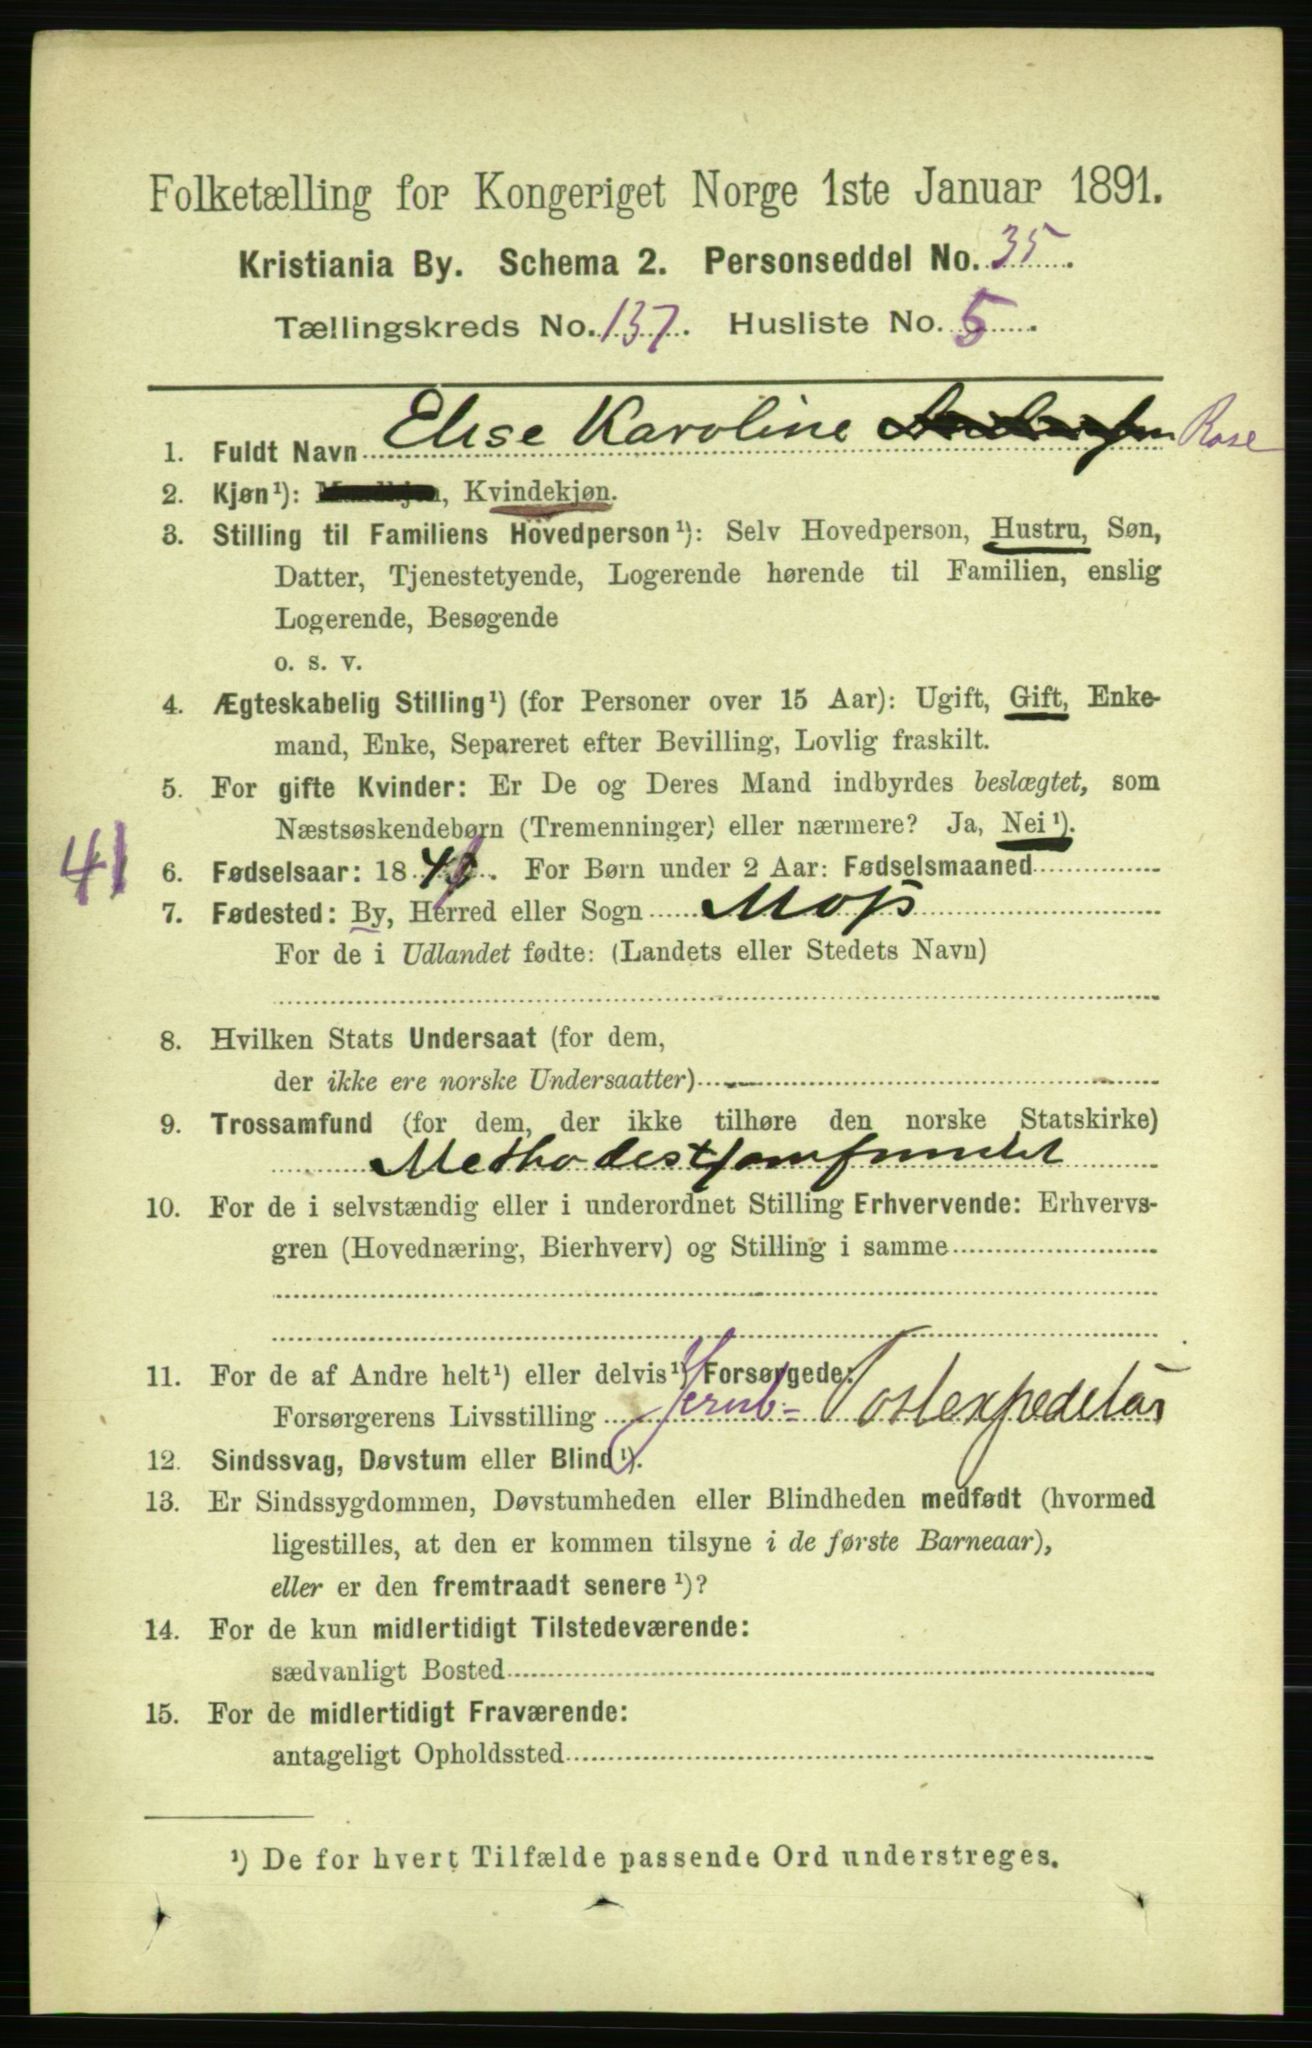 Folketælling for Kongeriget Norge 1ste Januar 1891.
Kristiania By. Schema 2. Personseddel No. 35.
Tællingskreds No. 137. Husliste No. 5.
1. Fuldt Navn Elise Karoline Rose
2. Kjøn¹): Mandkjøn, Kvindekjøn.
3. Stilling til Familiens Hovedperson¹): Selv Hovedperson, Hustru, Søn,
Datter, Tjenestetyende, Logerende hørende til Familien, enslig
Logerende, Besøgende
o. s. v.
4. Ægteskabelig Stilling¹) (for Personer over 15 Aar): Ugift, Gift, Enke-
mand, Enke, Separeret efter Bevilling, Lovlig fraskilt.
5. For gifte Kvinder: Er De og Deres Mand indbyrdes beslægtet, som
Næstsøskendebørn (Tremenninger) eller nærmere? Ja, Nei¹).
41
6. Fødselsaar: 18 . For Børn under 2 Aar: Fødselsmaaned
7. Fødested: By, Herred eller Sogn Moss
For de i Udlandet fødte: (Landets eller Stedets Navn)
8. Hvilken Stats Undersaat (for dem,
der ikke ere norske Undersaatter)
9. Trossamfund (for dem, der ikke tilhøre den norske Statskirke)
Methodestsamfundet
10. For de i selvstændig eller i underordnet Stilling Erhvervende: Erhvervs-
gren (Hovednæring, Bierhverv) og Stilling i samme
11. For de af Andre helt¹) eller delvis¹) Forsørgede:
Forsørgerens Livsstilling Jernb- Postexpeditør
12. Sindssvag, Døvstum eller Blind¹).
13. Er Sindssygdommen, Døvstumheden eller Blindheden medfødt (hvormed
ligestilles, at den er kommen tilsyne i de første Barneaar),
eller er den fremtraadt senere¹)?
14. For de kun midlertidigt Tilstedeværende:
sædvanligt Bosted
15. For de midlertidigt Fraværende:
antageligt Opholdssted
¹) De for hvert Tilfælde passende Ord understreges.